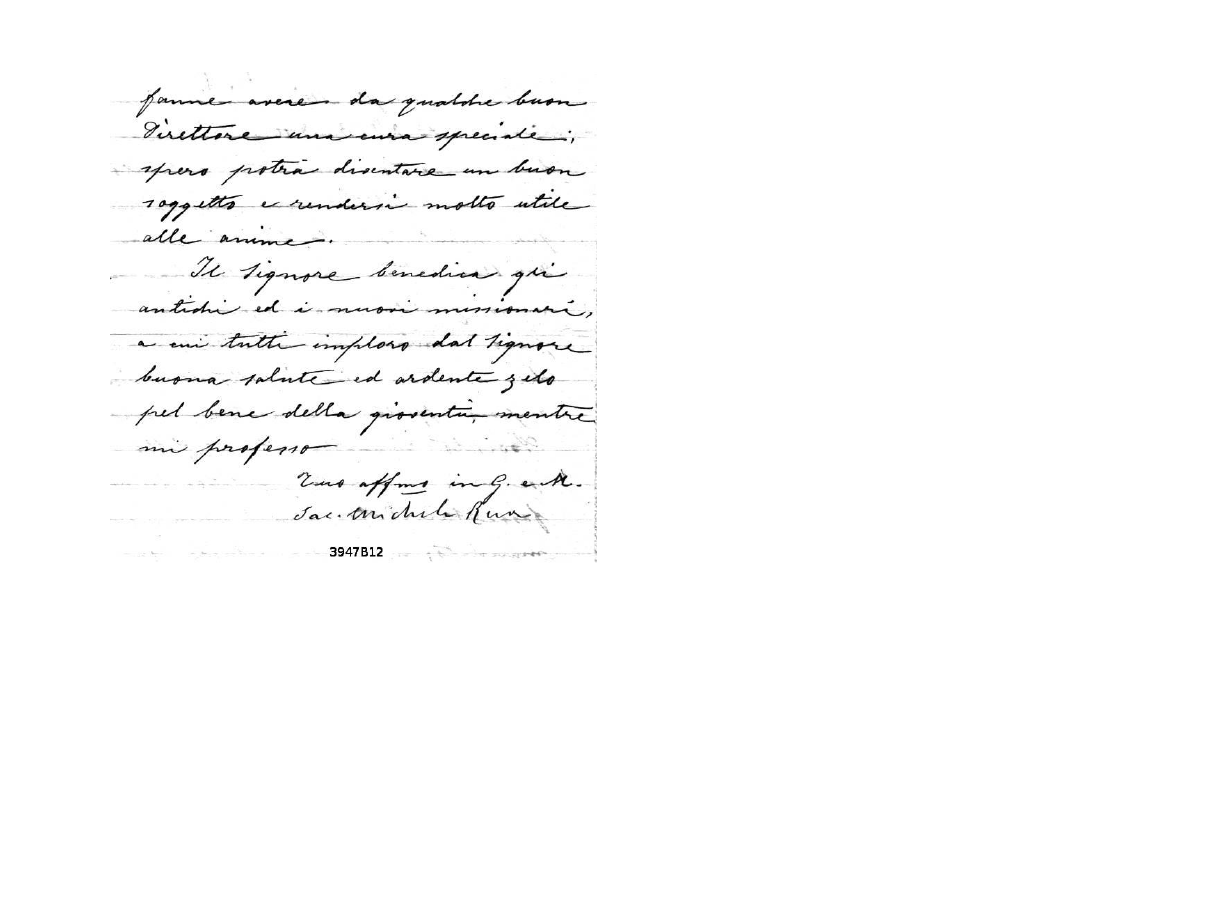 fanne avere da qualche buon
Direttore una cura speciale;
spero potrà diventare un buon
soggetto e rendersi molto utile
alle anime.
Il Signore benedica gli
antichi ed i nuovi missionari,
a cui tutti imploro dal Signore
buona salute ed ardente zelo
pel bene della gioventù, mentre
mi professo
Tuo affmo in G. e M.
Sac. Michele Rua
3947B12